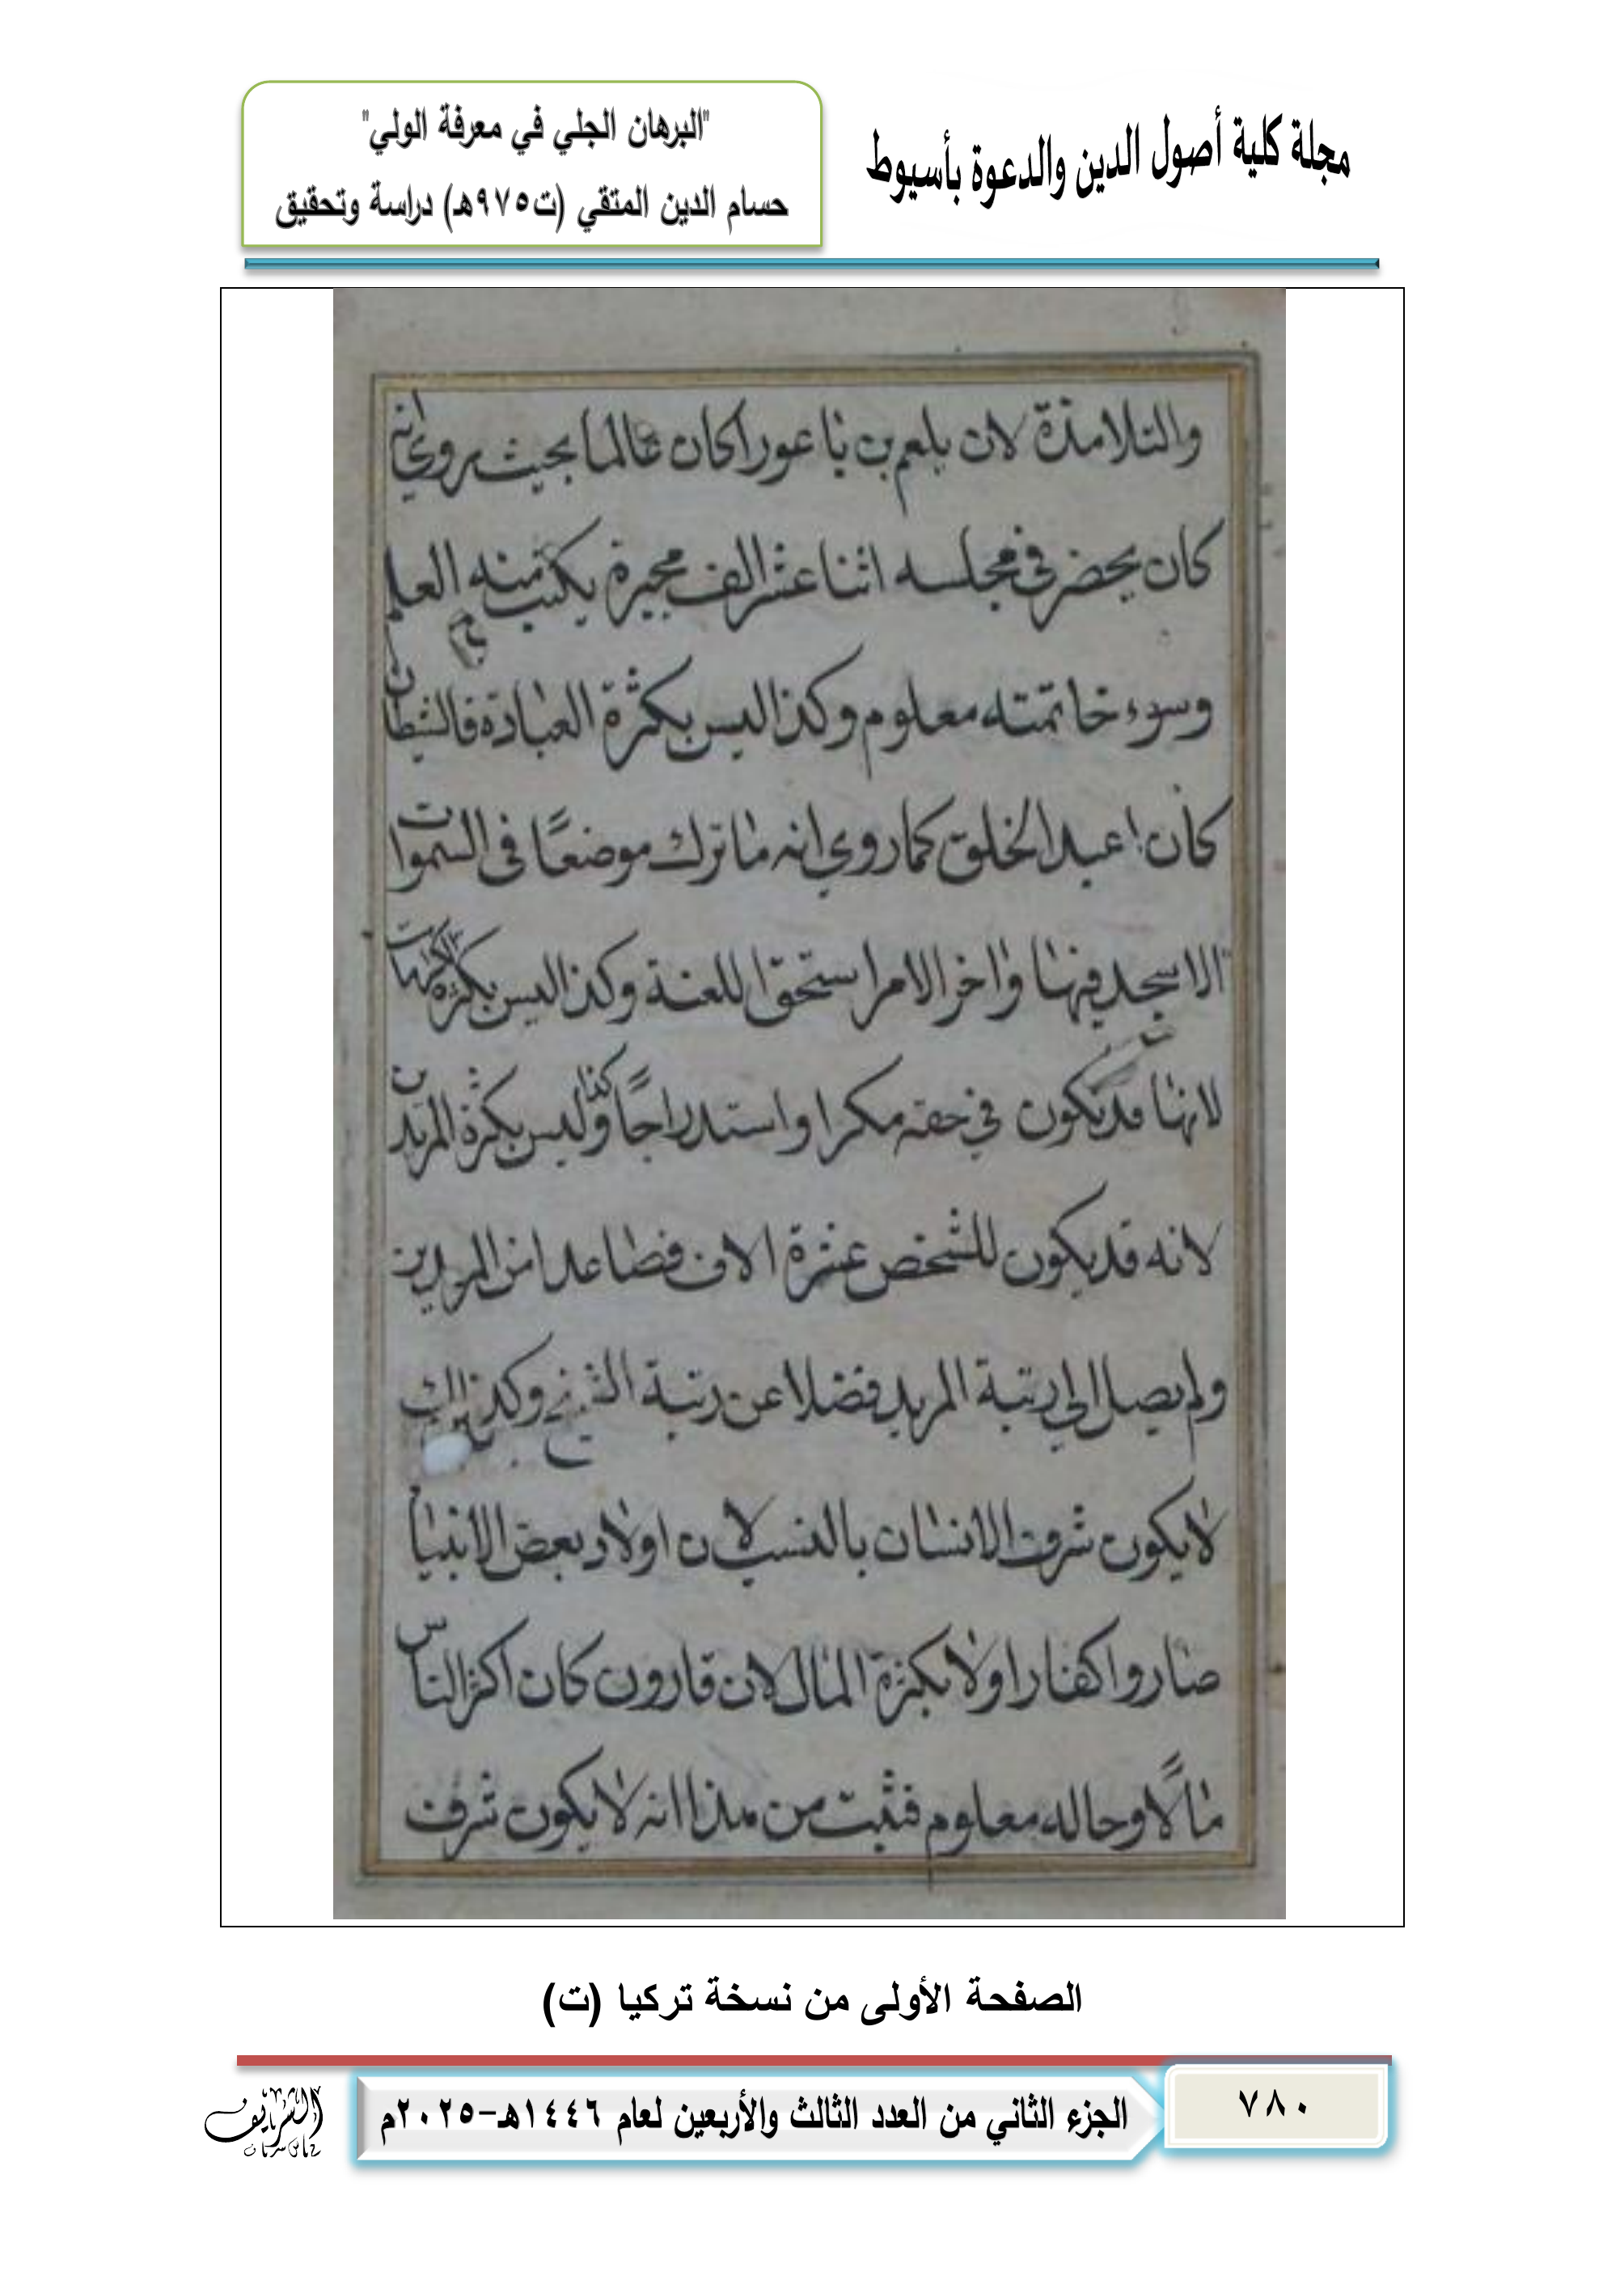 مجلة كلية أصول الدين والدعوة بأسيوط
"البرهان الجلي في معرفة الولي"
حسام الدين المتقي (ت٩٧٥هـ) دراسة وتحقيق
والتلامذة لان بلعم بن باعورا كان عالما بحيث يروي انه
كان يحضر في مجلسه اثنا عشر الف محبرة يكتب منه العلم
وسوء خاتمته معلوم وكذا ليس بكثرة العبادة فالشيطان
كان اعبد الخلق كما روي انه ما ترك موضعًا في السموات
الا سجد فيها واخر الامر استحق اللعنة وكذا ليس بكثرة الكرامات
لانها قد تكون في حقه مكرا واستدراجًا وكذا ليس بكثرة المريدين
لانه قد يكون للشخص عشرة الاف فصاعدا من المريدين
ولم يصل الى رتبة المريد فضلا عن رتبة الشيخ وكذلك
لا يكون شرف الانسان بالنسب لان اولاد بعض الانبياء
صاروا كفارا ولا بكثرة المال لان قارون كان اكثر الناس
مالًا وحاله معلوم فثبت من هذا انه لا يكون شرف
الصفحة الأولى من نسخة تركيا (ت)
٧٨٠
الجزء الثاني من العدد الثالث والأربعين لعام ١٤٤٦هـ-٢٠٢٥م